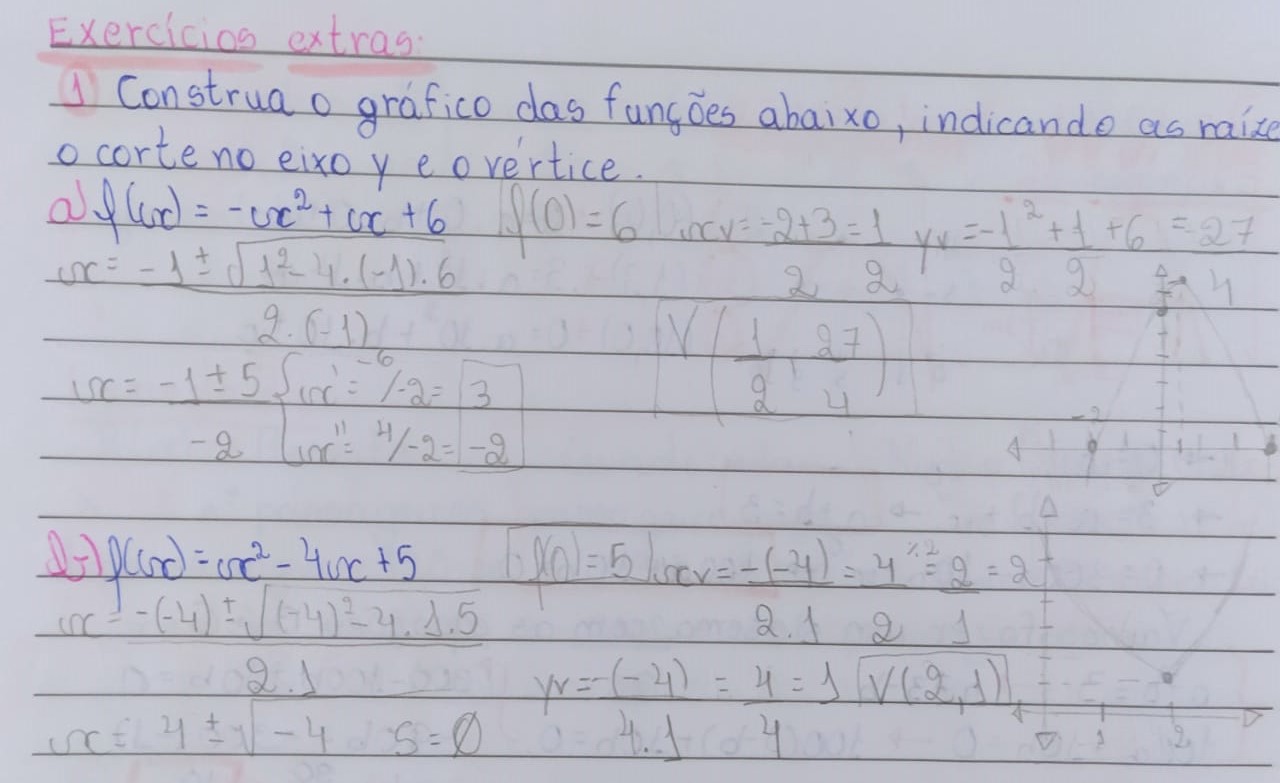 Exercícios extras:
1 Construa o gráfico das funções abaixo, indicando as raíze
o corte no eixo y e o vértice.
a) f(x) = -x² + x + 6 f(0) = 6 xv = -2+3 = 1 yv = -1² + 1 + 6 = 27
x = -1 ± √1² - 4.(-1).6 2 2 2 2 4
2.(-1) V(1/2, 27/4)
x = -1 ± 5 x' = -6/-2 = 3
-2 x'' = 4/-2 = -2 -2
b) f(x) = x² - 4x + 5 f(0) = 5 xv = -(-4) = 4 ÷2 = 2 = 2
x = -(-4) ± √(-4)² - 4.1.5 2.1 2 1
2.1 yv = -(-4) = 4 = 1 V(2,1)
x = 4 ± √-4 S = ∅ 4.1 4 1 2